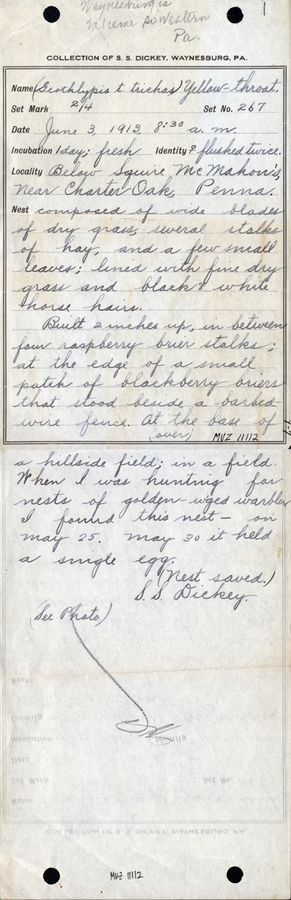 Waynesburg is
Extreme So Western
Pa.
1
COLLECTION OF S. S. DICKEY, WAYNESBURG, PA.
Name (Geothlypis t. trichas) Yellow-throat.
Set Mark 2/4 Set No. 267
Date June 3, 1913, 8:30 a.m.
Incubation 1 day; fresh Identity ♀ flushed twice.
Locality Below Squire McMahon's,
Near Charter Oak, Penna.
Nest composed of wide blades
of dry grass, several stalks
of hay, and a few small
leaves; lined with fine dry
grass and black & white
horse hairs.
Built 2 inches up, in between
four raspberry brier stalks;
at the edge of a small
patch of blackberry briers
that stood beside a barbed
wire fence. At the base of
(over) MVZ 11112
a hillside field; in a field.
When I was hunting for
nests of golden-wged warbler
I found this nest — on
May 25. May 30 it held
a single egg.
(Nest saved.)
S.S. Dickey.
(See Photo)
MVZ 11112